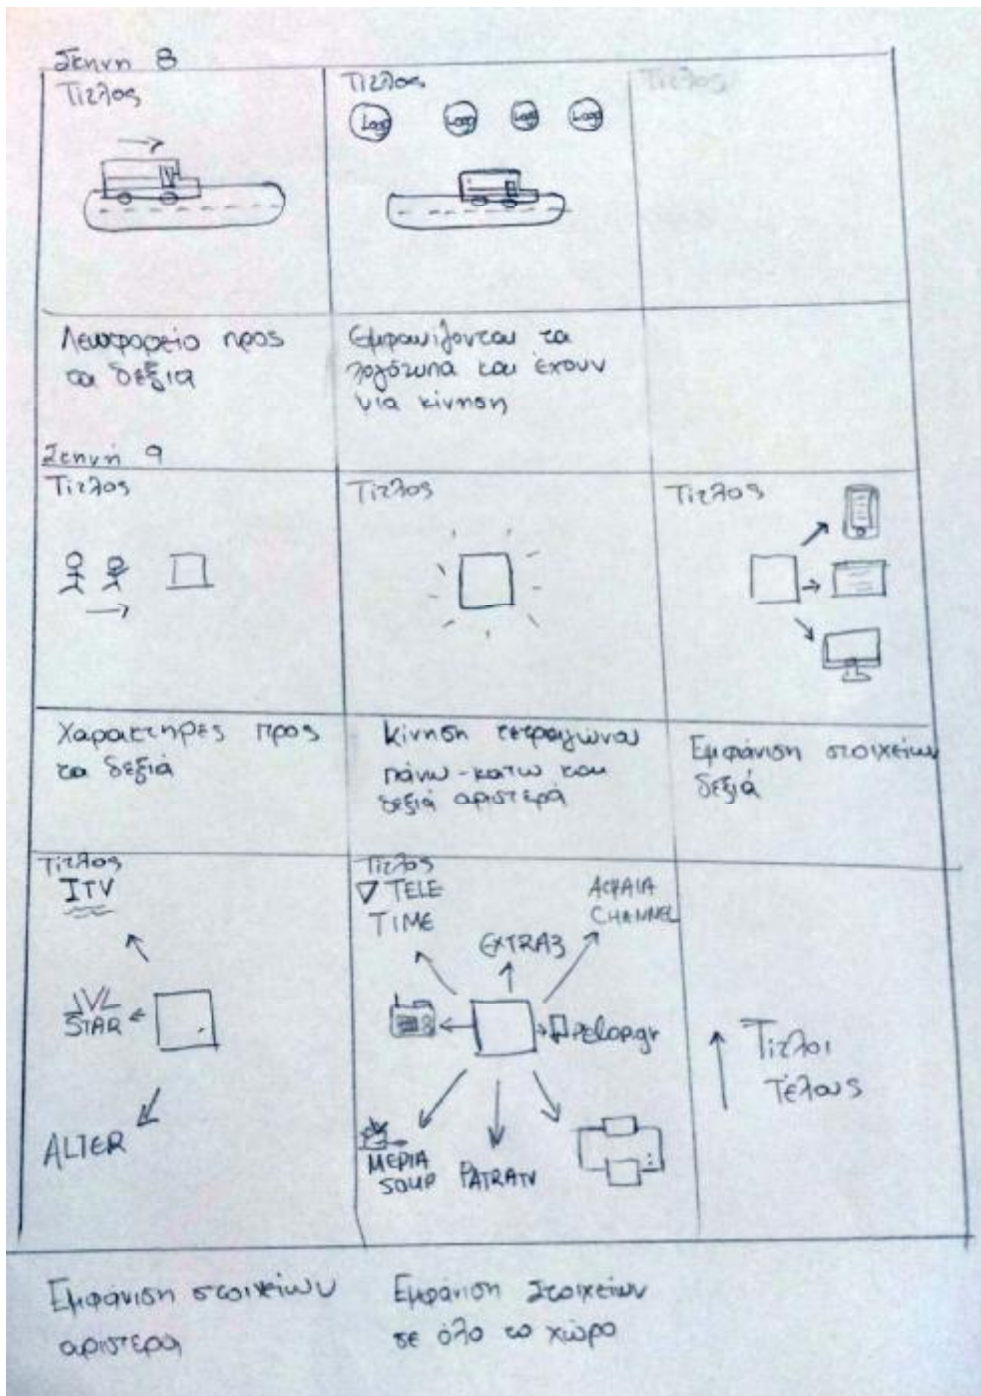 Σκηνή 8
Τίτλος
Τίτλος
Logo
Logo
Logo
Logo
Τίτλος
Λεωφορείο προς
τα δεξιά
Εμφανίζονται τα
λογότυπα και έχουν
μια κίνηση
Σκηνή 9
Τίτλος
Τίτλος
Τίτλος
Χαρακτήρες προς
τα δεξιά
Κίνηση τετραγώνου
πάνω-κάτω και
δεξιά αριστερά
Εμφάνιση στοιχείων
δεξιά
Τίτλος
ITV
STAR
ALTER
Τίτλος
TELE
TIME
ΑΧΑΙΑ
CHANNEL
EXTRA3
pelop.gr
MEDIA
SOUP
PATRATV
Τίτλοι
τέλους
Εμφάνιση στοιχείων
αριστερά
Εμφάνιση Στοιχείων
σε όλο το χώρο